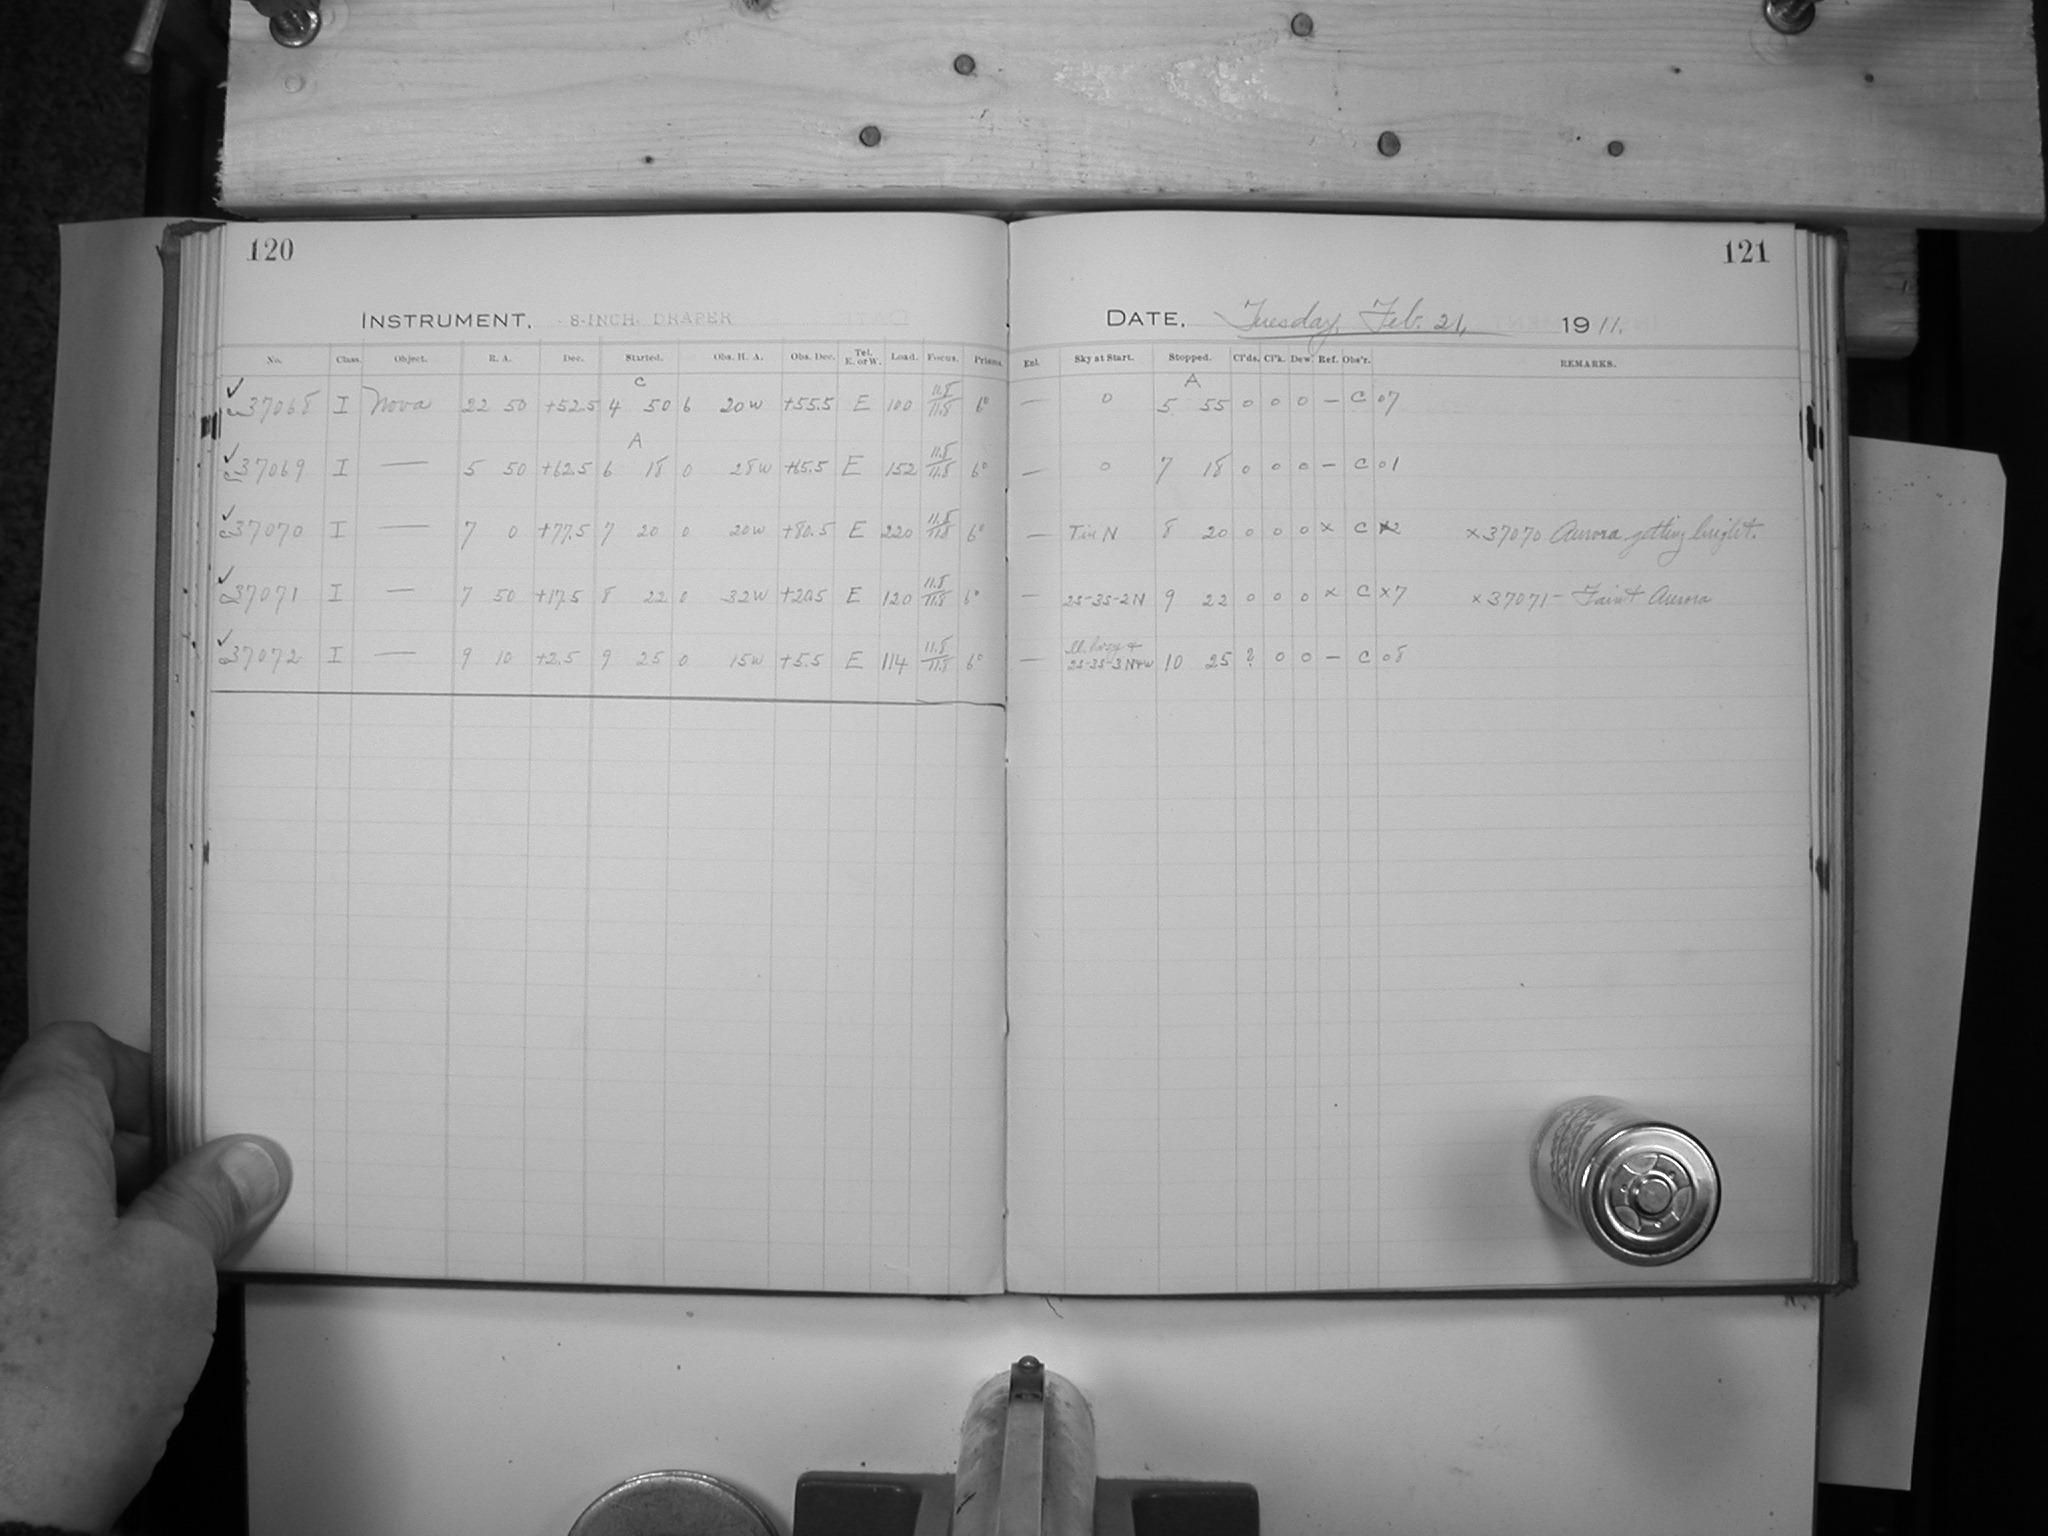 120
INSTRUMENT, 8-INCH DRAPER
No. Class. Object. R. A. Dec. Started. Obs. H. A. Obs. Dec. Tel. E. or W. Load. Focus. Prisms.
C
✓ 37068 I Nova 22 50 +52.5 4 50 6 20 W +55.5 E 100 11.8/11.8 6°
A
✓ 37069 I — 5 50 +62.5 6 18 0 28 W +65.5 E 152 11.8/11.8 6°
✓ 37070 I — 7 0 +77.5 7 20 0 20 W +80.5 E 220 11.8/11.8 6°
✓ 37071 I — 7 50 +17.5 8 22 0 32 W +20.5 E 120 11.8/11.8 6°
✓ 37072 I — 9 10 +2.5 9 25 0 15 W +5.5 E 114 11.8/11.8 6°
121
DATE, Tuesday, Feb. 21, 1911.
Enl. Sky at Start. Stopped. Cl'ds. Cl'k. Dew. Ref. Obs'r. REMARKS.
A
— 0 5 55 0 0 0 – C 07
— 0 7 18 0 0 0 – C 01
— N 8 20 0 0 0 × C × 37070 Aurora getting bright.
— 25-35-2N 9 22 0 0 0 × C ×7 × 37071 – Faint Aurora
— 25-35-3 N+W 10 25 ? 0 0 – C 08